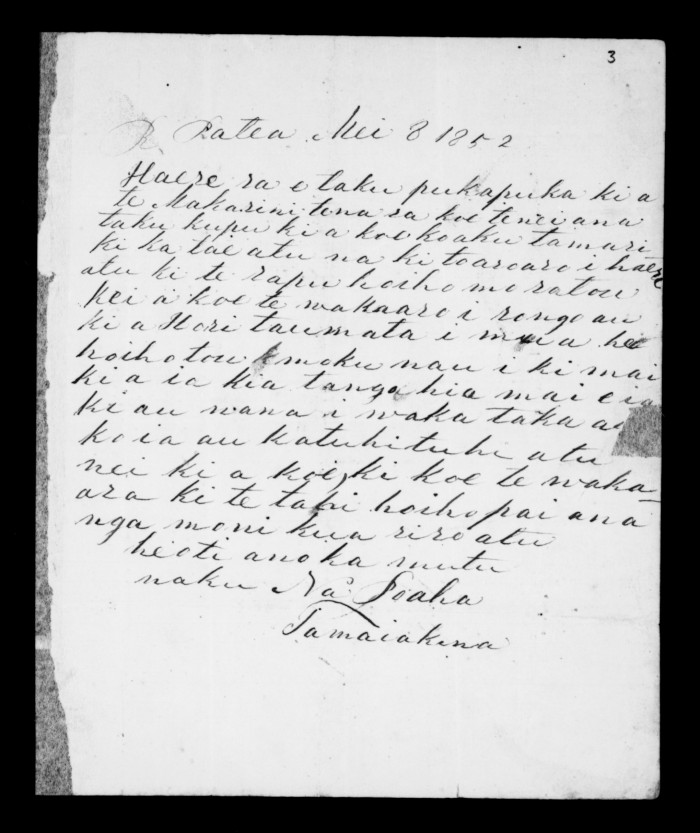 3
Patea Mei 8 1852
Haere ra e taku pukapuka ki a
te Makarini tena ra koe tenei ana
taku kupu ki a koe ko aku tamari
ki ka tae atu na ki to aroaro i haere
atu ki te rapu hoiho mo ratou
kei a koe te wakaaro i rongo au
ki a Hori taumata i mua he
hoiho tou moku nau i ki mai
ki a ia kia tangohia mai e ia
ki au nana i waka taka
koia au ka tuhituhi atu
nei ki a koe, ki koe te waka
ara ki te tahi hoiho pai ana
nga moni kua riro atu
heoti ano ka mutu
naku Na Poaha
Tamaiakina